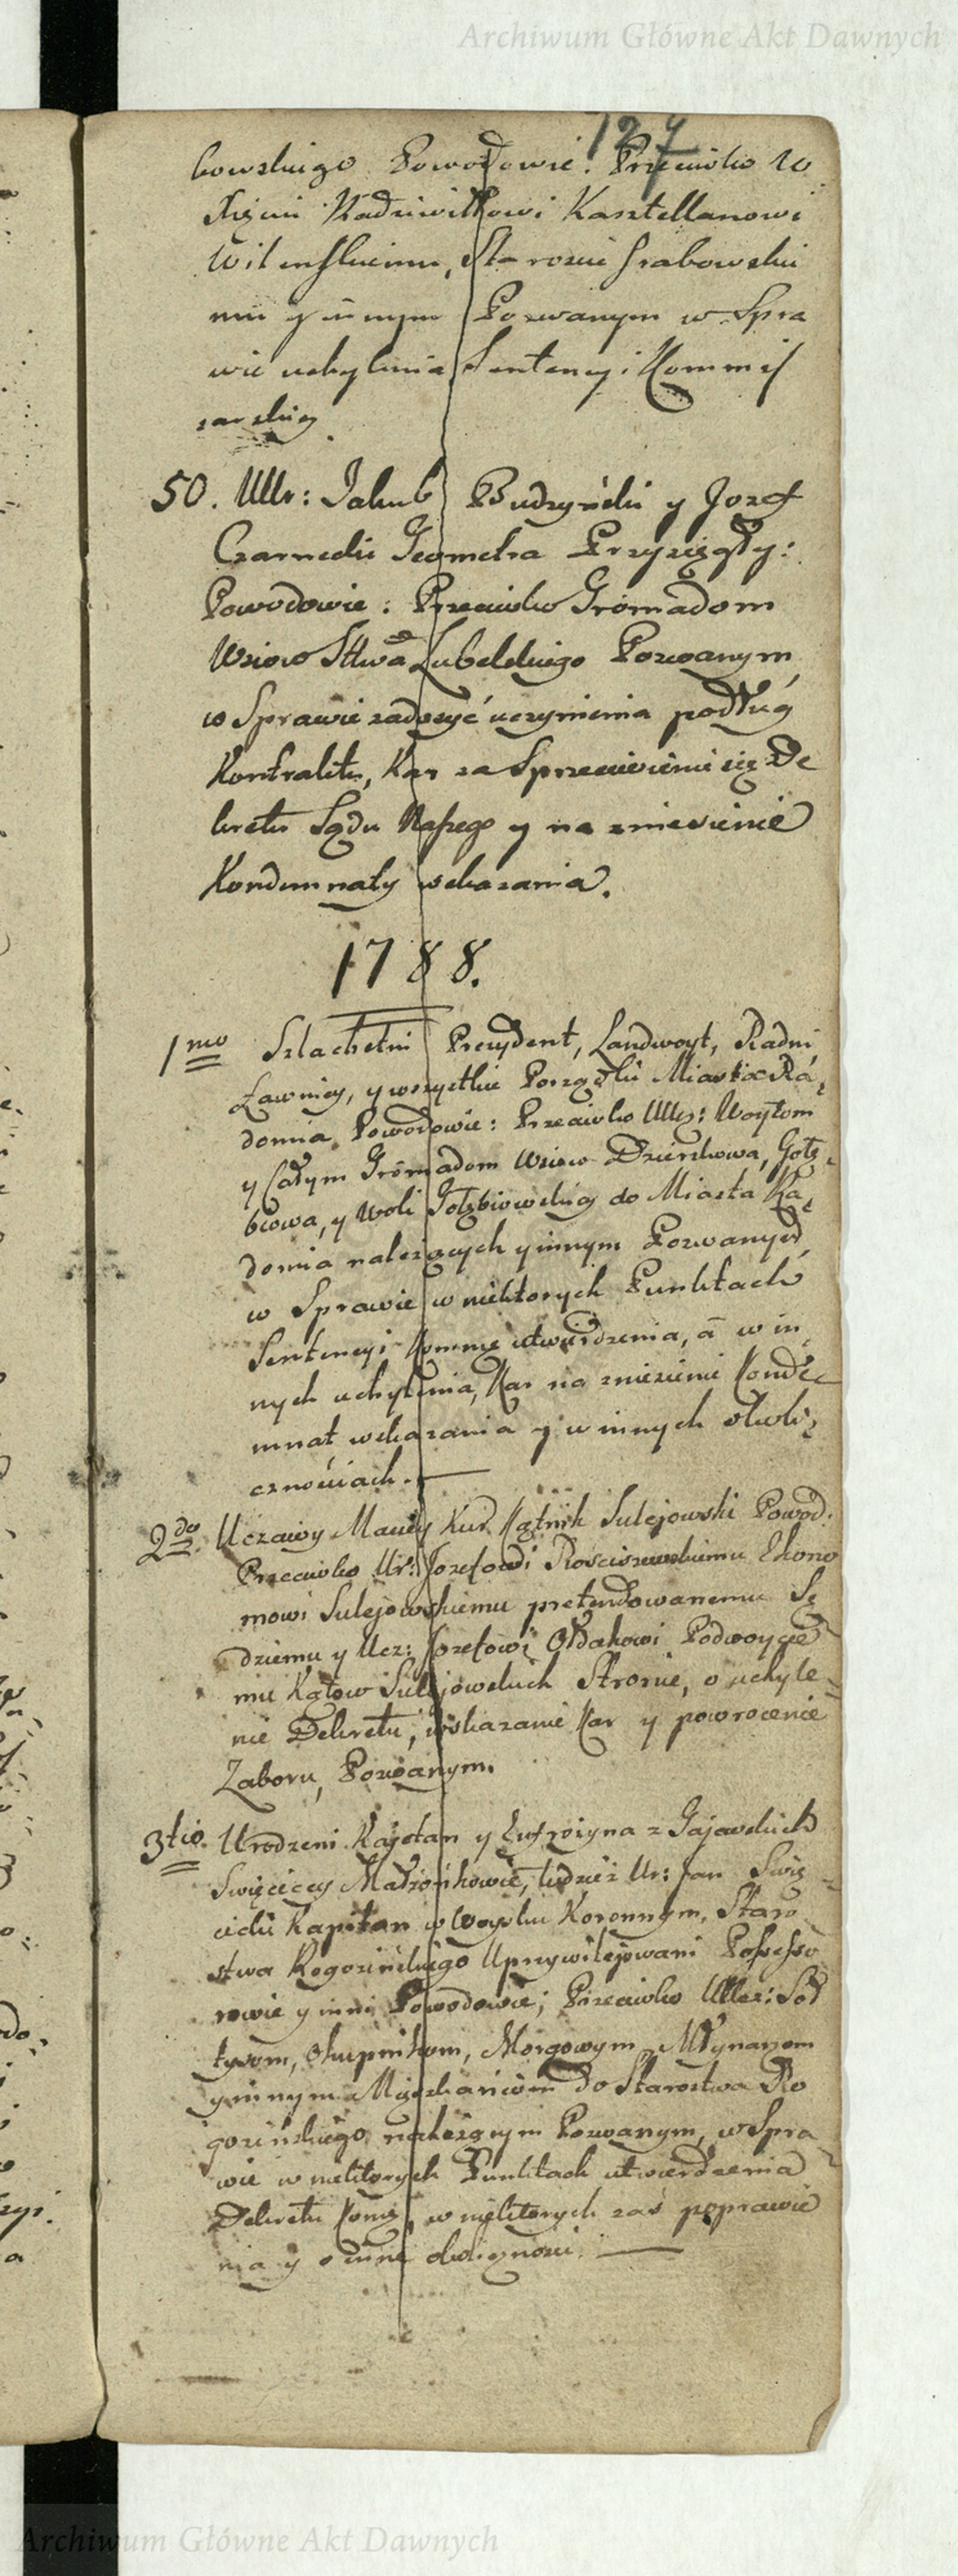 Archiwum Główne Akt Dawnych
127
bowskiego Powodowie. Przeciwko
Xięciu Radziwiłłowi Kasztellanowi
Wilenskiemu, Staroscie Grabowskie
mu y innym Pozwanym w Spra
wie uchylenia Sentencyi Kommis
sarskiey
50. Ullr: Jakub Budzyński y Jozef
Czarnecki Jeometra Przysięgły:
Powodowie: Przeciwko Gromadom
Wsiow Sttwa Lubelskiego Pozwanym
w Sprawie zadosyć uczynienia podług
Kontraktu, Kar za Sprzeciwienie się De
kretu Sądu Naszego y na zniesienie
Kondemnaty wskazania.
1788.
1mo Szlachetni Prezydent, Landwoyt, Radni
Ławnicy, y wszystkie Porządki Miasta Ra,
domia Powodowie: Przeciwko Ullr: Woytom
y Całym Gromadom Wsiow Dzierzkowa, Gołę,
biowa, y Woli Gołębiowskiey do Miasta Ra,
domia należących y innym Pozwanym
w Sprawie w niektorych Punktach
Sentencyi Kommis utwierdzenia, a w in,
nych uchylenia, Kar na zniesienie Konde
mnat wskazania y w innych okoli,
cznościach.
2do. Uczciwy Maciey Kur Kątnik Sulejowski Powod:
Przeciwko Ur: Jozefowi Rosciszewskiemu Ekono
mowi Sulejowskiemu pretendowanemu Sę
dziemu y Ucz: Jozefowi Ołdakowi Podwoycie
mu Kątow Sulejowskich Stronie, o uchyle
nie Dekretu, wskazanie Kar y powrocenie
Zaboru, Pozwanym.
3tio. Urodzeni Kajetan y Eufrozyna z Gajewskich
Swięciccy Małżonkowie, tudzież Ur: Jan Swię
cicki Kapitan w Woysku Koronnym, Staro
stwa Rogozińskiego Uprzywilejowani Possesso
rowie y inni Powodowie; Przeciwko Ullr: Soł
tysom, Okupnikom, Morgowym, Młynarzom
y innym Mieszkańcom do Starostwa Ro
gozińskiego należącym Pozwanym, w Spra
wie w niektorych Punktach utwierdzenia
Dekretu Kommis, w niektorych zaś poprawie
nia y o inne okoliczności.
Archiwum Główne Akt Dawnych